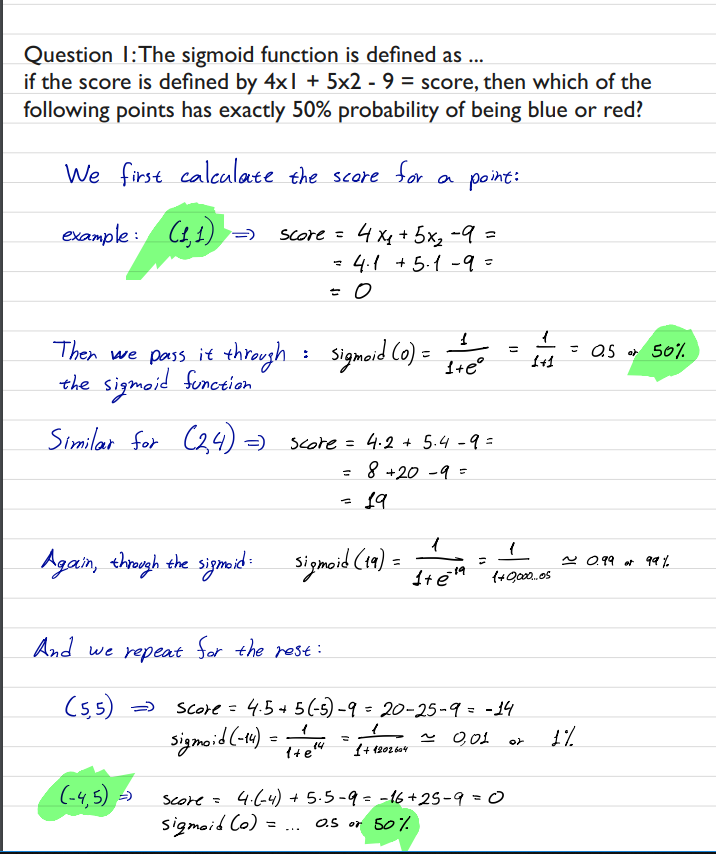 Question 1:The sigmoid function is defined as ...
if the score is defined by 4x1 + 5x2 - 9 = score, then which of the
following points has exactly 50% probability of being blue or red?
We first calculate the score for a point:
example: (1,1) => score = 4x₁ + 5x₂ -9 =
= 4·1 + 5·1 -9 =
= 0
Then we pass it through : sigmoid(0) = 1/(1+e⁰) = 1/(1+1) = 0.5 or 50%
the sigmoid function
Similar for (2,4) => score = 4·2 + 5·4 -9 =
= 8 +20 -9 =
= 19
Again, through the sigmoid: sigmoid(19) = 1/(1+e⁻¹⁹) = 1/(1+0,000..05) ≃ 0.99 or 99%
And we repeat for the rest:
(5,5) => score = 4·5 + 5(-5) -9 = 20-25-9 = -14
sigmoid(-14) = 1/(1+e¹⁴) = 1/(1+1202604) ≃ 0,01 or 1%
(-4,5) => score = 4·(-4) + 5·5-9 = -16+25-9 = 0
sigmoid(0) = ... 0.5 or 50%